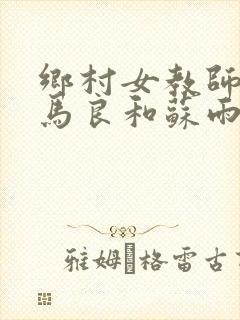 鄉村女教師
馬良和蘇雨
雅姆·格雷古